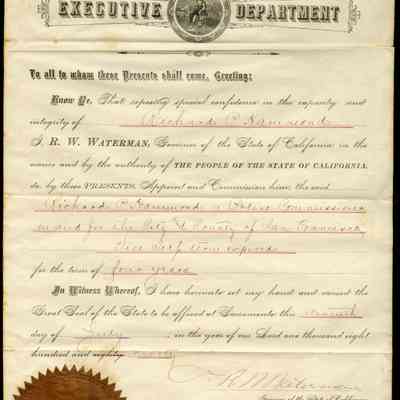 EXECUTIVE DEPARTMENT
To all to whom these Presents shall come, Greeting:
Know Ye, That reposing special confidence in the capacity and
integrity of Richard P. Hammond
I, R. W. WATERMAN, Governor of the State of California in the
name and by the authority of THE PEOPLE OF THE STATE OF CALIFORNIA,
do by these PRESENTS, Appoint and Commission him, the said
Richard P. Hammond a Police Commissioner
in and for the City & County of San Francisco,
Vice self term expired
for the term of four years
In Witness Whereof, I have hereunto set my hand and caused the
Great Seal of the State to be affixed at Sacramento this
day of July, in the year of our Lord one thousand eight
hundred and eighty
R W Waterman
Governor of the State of California